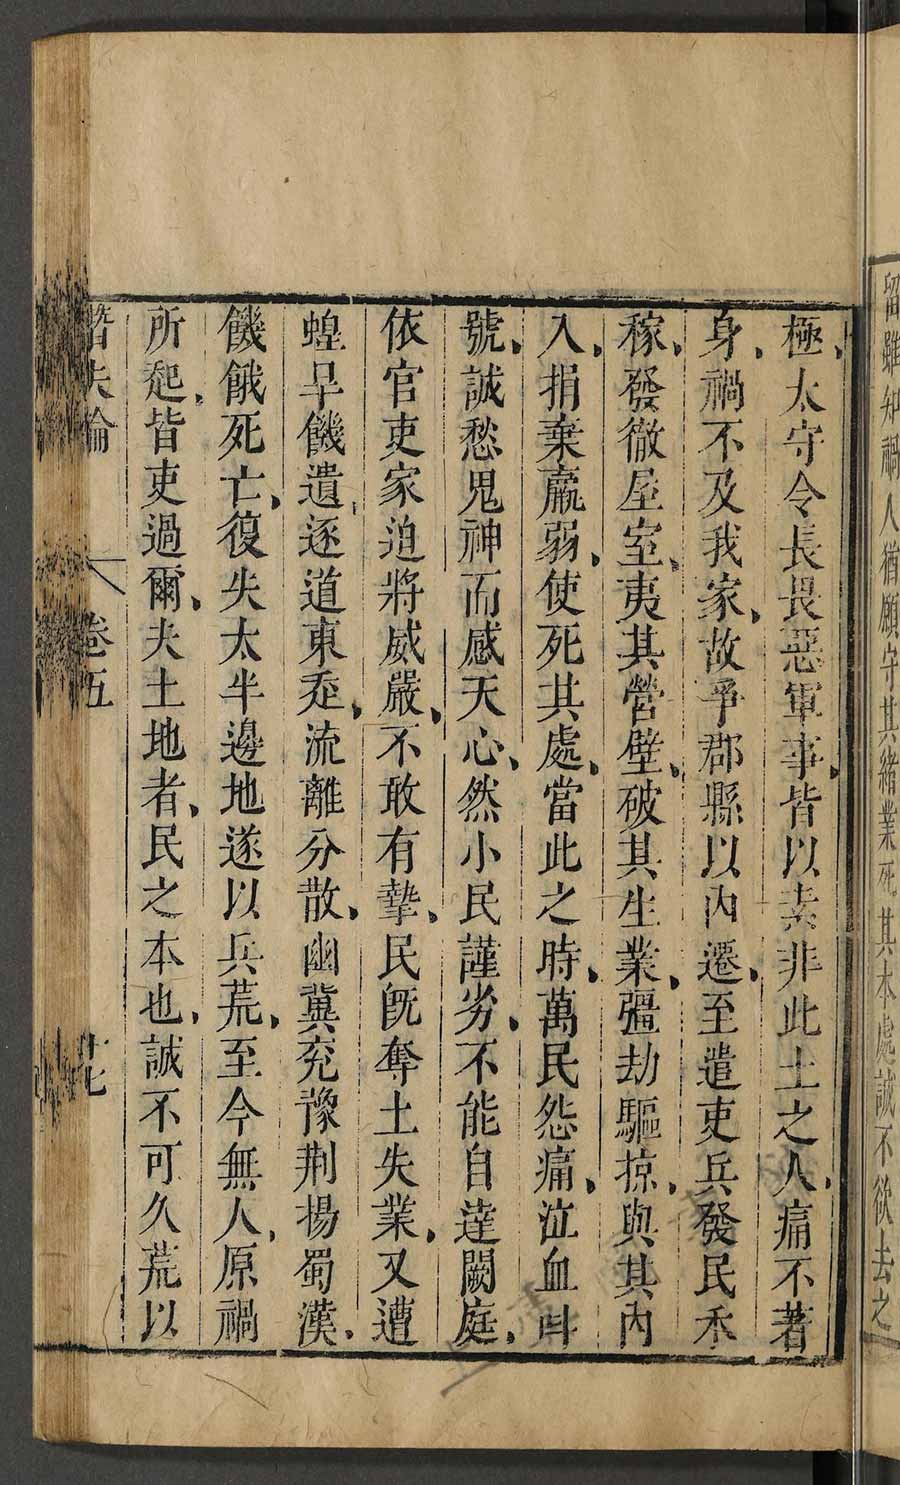 留雖知禍人猶願守其緒業死其本處誠不欲去之
極太守令長畏惡軍事皆以素非此土之人痛不著
身禍不及我家故爭郡縣以內遷至遣吏兵發民禾
稼發徹屋室夷其營壁破其生業彊劫驅掠與其內
入捐棄羸弱使死其處當此之時萬民怨痛泣血呌
號誠愁鬼神而感天心然小民謹劣不能自達闕庭
依官吏家迫將威嚴不敢有摯民旣奪土失業又遭
蝗旱饑遺逐道東走流離分散幽冀兖豫荆揚蜀漢
饑餓死亡復失太半邊地遂以兵荒至今無人原禍
所起皆吏過爾夫土地者民之本也誠不可久荒以
潛夫論 卷五 廿七